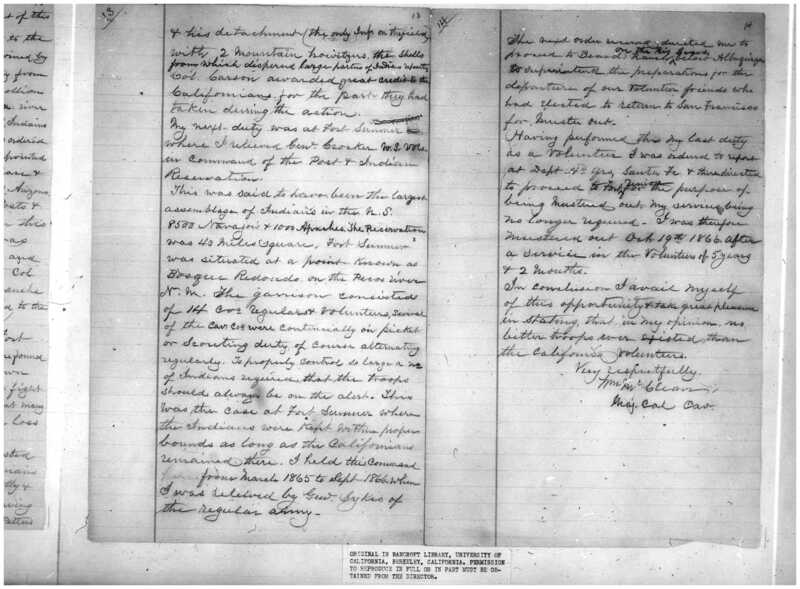 t of this
to the
ined by
y from
allion
river
Indians
ordered
pointed
ans &
Arizona,
& this
was
and
Col
anche
d to the
ort
performed
own
fight
at many
loss
sted
mains
tly &
iving
atters
13/
13
& his detachment (the only Inf. on the field
with 2 Mountain howitzers, the shells
from which dispersed large parties of Indians
Col. Carson awarded great credit to the
Californians, for the part they had
taken during the action.
My next duty was at Fort Sumner
where I relieved Genl Crocker U.S. Vols.
in command of the Post & Indian
Reservation.
This was said to have been the largest
assemblage of Indians in the U.S.
8500 Navajo's & 1000 Apaches. The Reservation
was 40 Miles square. Fort Sumner
was situated at a point known as
Bosque Redondo on the Pecos River
N.M. The garrison consisted
of 14 Cos. regulars & Volunteers, several
of the Cav Cos were continually on picket
or Scouting duty of course alternating
regularly. To properly control so large a no
of Indians required that the troops
should always be on the alert. This
was the case at Fort Sumner where
the Indians were kept within proper
bounds as long as the Californians
remained there. I held the Command
from March 1865 to Sept 1866 when
I was relieved by Genl. Sykes of
the regular army.
14/
14
The next order received directed me to
proceed to Beard's ranch, below Albuquerque
On the Rio Grande
to superintend the preparations for the
departure of our Volunteer friends who
had elected to return to San Francisco
for Muster out.
Having performed this my last duty
as a Volunteer I was ordered to report
at Dept. Hd. Qrs, Santa Fe & there directed
to proceed to for the purpose of
being Mustered out my services being
no longer required. I was therefore
mustered out Oct 19th 1866 after
a service in the Volunteers of 5 years
& 2 Months.
In conclusion I avail myself
of this opportunity & take great pleasure
in stating, that in my opinion no
better troops ever existed than
the California Volunteers.
Very respectfully.
Wm McCleave
Maj. Cal Cav.
ORIGINAL IN BANCROFT LIBRARY, UNIVERSITY OF
CALIFORNIA, BERKELEY, CALIFORNIA. PERMISSION
TO REPRODUCE IN FULL OR IN PART MUST BE OB-
TAINED FROM THE DIRECTOR.